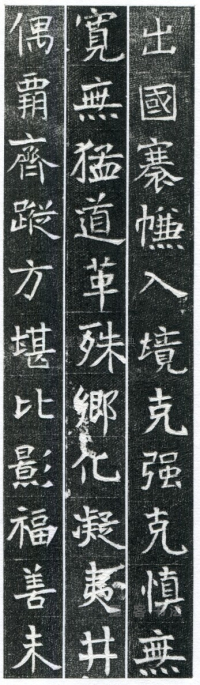 出國褰㡘入境克强克慎無
寬無猛道革殊鄉化凝夷井
偶霸齊蹤方堪比影福善未